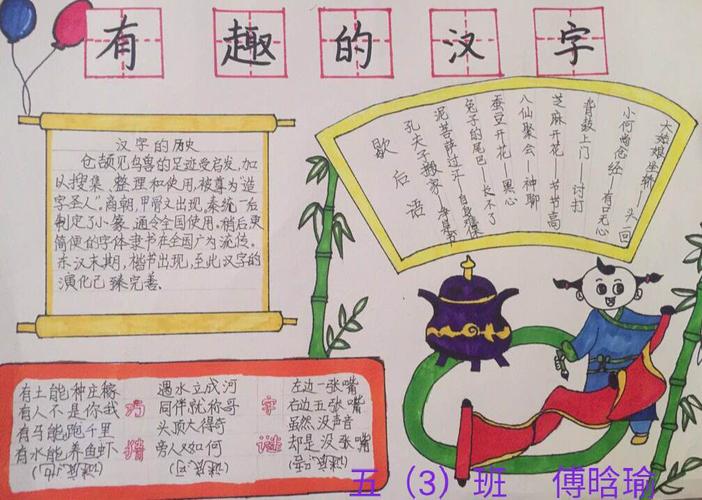 有趣的汉字
汉字的历史
仓颉见鸟兽的足迹受启发，加
以搜集、整理和使用，被尊为“造
字圣人”。商朝，甲骨文出现，秦统一后
制定了小篆，通令全国使用。稍后更
简便的字体隶书在全国广为流传。
东汉末期，楷书出现，至此汉字的
演化已臻完善。
歇后语
孔夫子搬家——净是书
泥菩萨过江——自身难保
兔子的尾巴——长不了
蚕豆开花——黑心
八仙聚会——神聊
芝麻开花——节节高
背鼓上门——讨打
小何尚念经——有口无心
大姑娘坐轿——头一回
巧猜字谜
有土能种庄稼
有人不是你我
有马能跑千里
有水能养鱼虾
遇水立成河
同伴就称哥
头顶大得奇
旁人又如何
左边一张嘴
右边五张嘴
虽然没声音
却是没张嘴
五（3）班 傅晗瑜